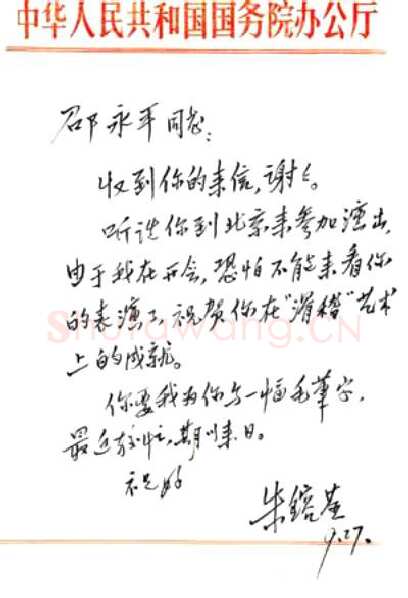 中华人民共和国国务院办公厅
邵永平同志：
收到你的来信，谢々。
听说你到北京来参加演出，
由于我在开会，恐怕不能来看你
的表演了，祝贺你在“滑稽”艺术
上的成就。
你要我为你写一幅毛筆字，
最近较忙，期以来日。
祝好
朱鎔基
9.27.
Shufawang.CN